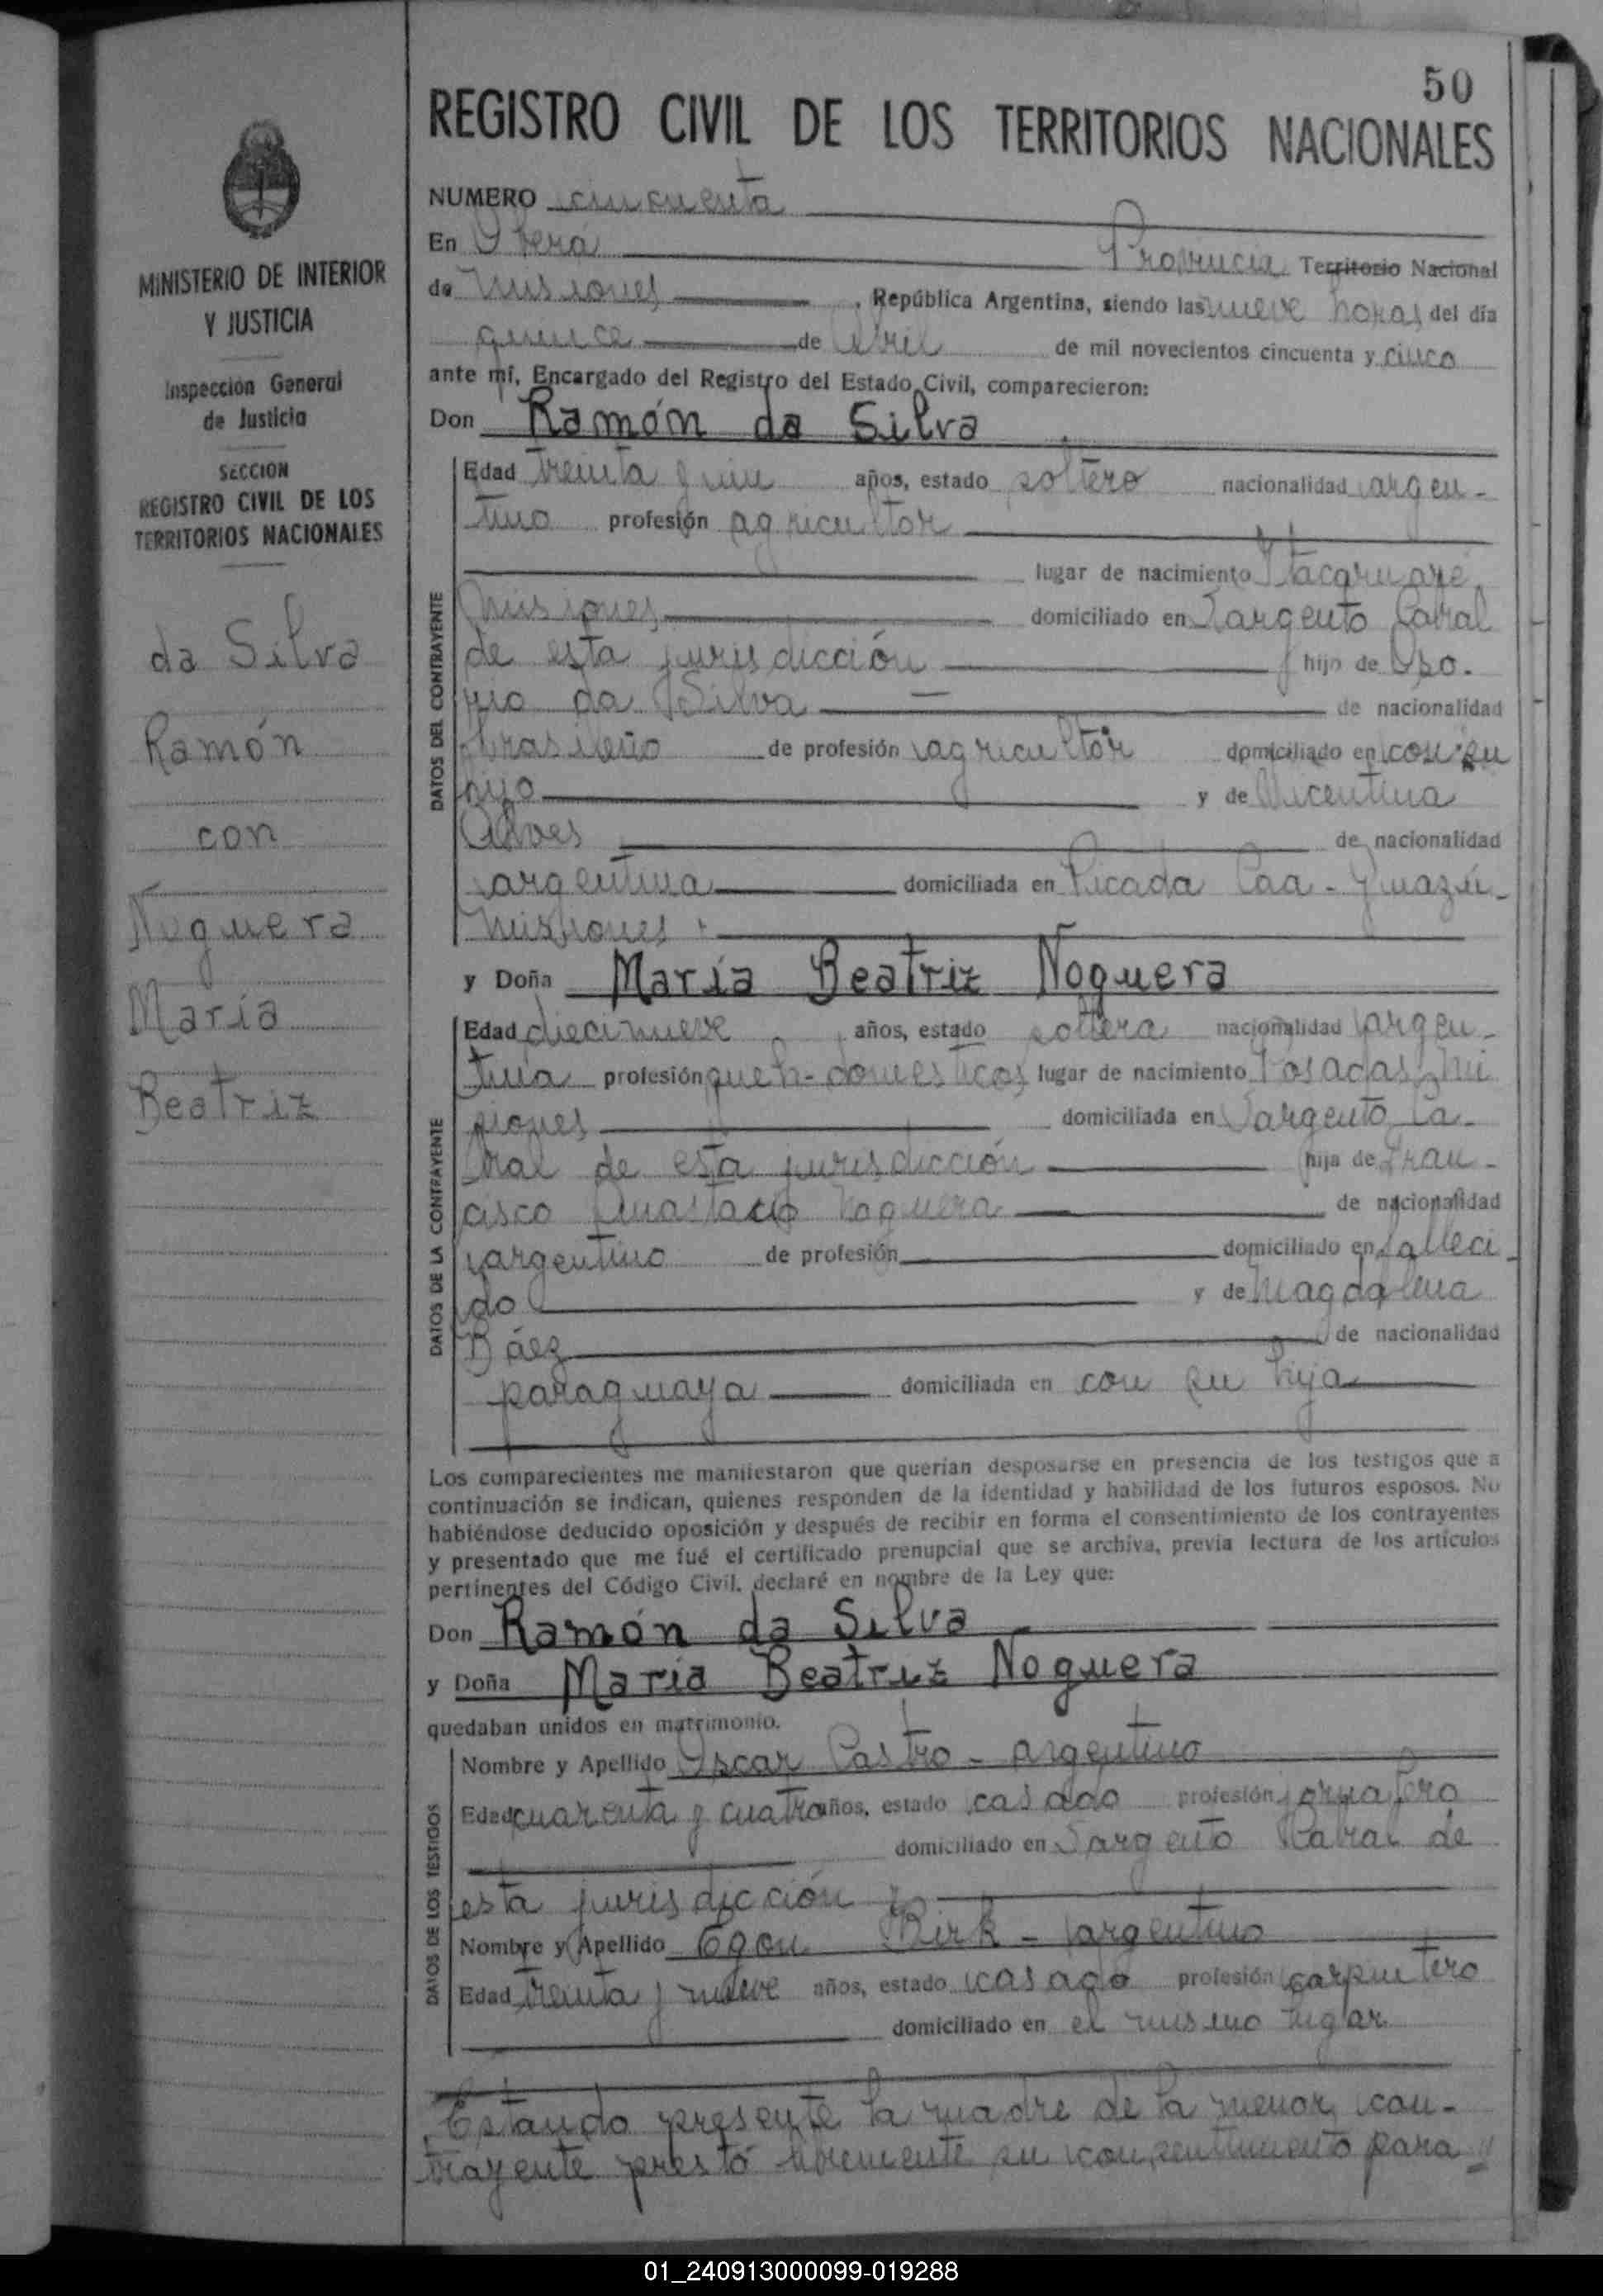 50
REGISTRO CIVIL DE LOS TERRITORIOS NACIONALES
MINISTERIO DE INTERIOR
Y JUSTICIA
Inspección General
de Justicia
SECCION
REGISTRO CIVIL DE LOS
TERRITORIOS NACIONALES
da Silva
Ramón
con
Noguera
María
Beatriz
NUMERO cincuenta
En Oberá Provincia Territorio Nacional
de Misiones, República Argentina, siendo las nueve horas del día
quince de Abril de mil novecientos cincuenta y cinco
ante mí, Encargado del Registro del Estado Civil, comparecieron:
Don Ramón da Silva
DATOS DEL CONTRAYENTE
Edad treinta y un años, estado soltero nacionalidad argen-
tino profesión agricultor
lugar de nacimiento Itacaruaré,
Misiones domiciliado en Sargento Cabral
de esta jurisdicción hijo de Oso-
rio da Silva de nacionalidad
brasileño de profesión agricultor domiciliado en con su
hijo y de Vicentina
Alves de nacionalidad
argentina domiciliada en Picada Caa-Guazú-
Misiones
y Doña María Beatriz Noguera
DATOS DE LA CONTRAYENTE
Edad diecinueve años, estado soltera nacionalidad argen-
tina profesión queh-domésticos lugar de nacimiento Posadas, Mi
siones domiciliada en Sargento Ca-
bral de esta jurisdicción hija de Fran-
cisco Anastacio Noguera de nacionalidad
argentino de profesión domiciliado en falleci-
do y de Magdalena
Báez de nacionalidad
paraguaya domiciliada en con su hija
Los comparecientes me manifestaron que querían desposarse en presencia de los testigos que a
continuación se indican, quienes responden de la identidad y habilidad de los futuros esposos. No
habiéndose deducido oposición y después de recibir en forma el consentimiento de los contrayentes
y presentado que me fué el certificado prenupcial que se archiva, previa lectura de los artículos
pertinentes del Código Civil, declaré en nombre de la Ley que:
Don Ramón da Silva
y Doña María Beatriz Noguera
quedaban unidos en matrimonio.
DATOS DE LOS TESTIGOS
Nombre y Apellido Oscar Castro - argentino
Edad cuarenta y cuatro años, estado casado profesión jornalero
domiciliado en Sargento Cabral de
esta jurisdicción y
Nombre y Apellido Egon Birk - argentino
Edad treinta y nueve años, estado casado profesión carpintero
domiciliado en el mismo lugar
Estando presente la madre de la menor con-
trayente prestó libremente su consentimiento para
01_240913000099-019288